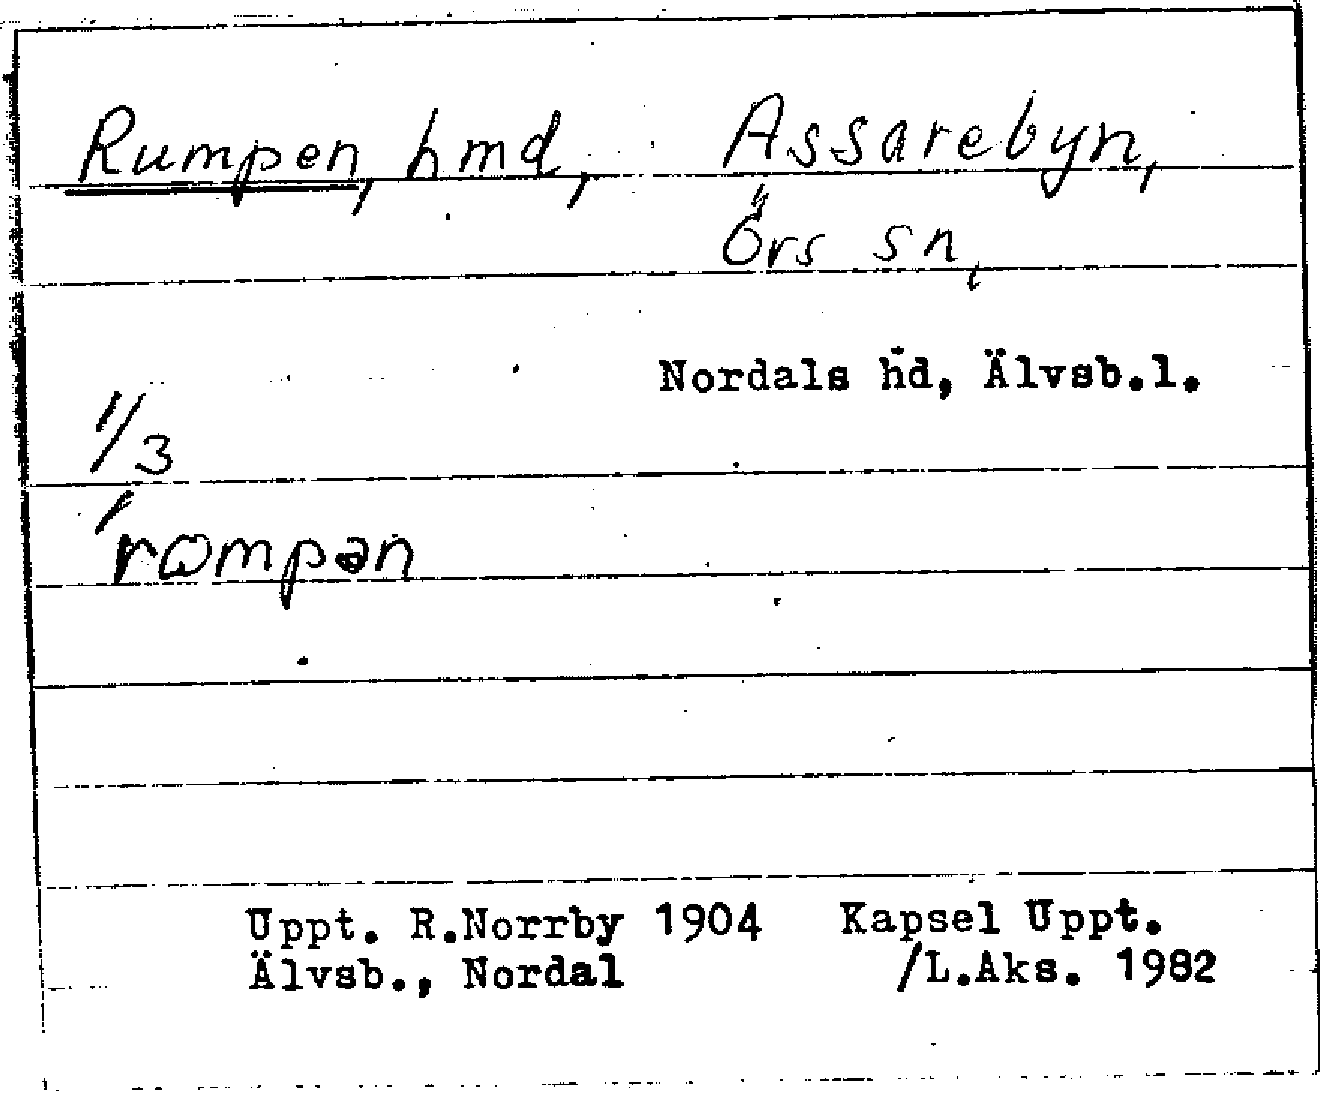 Rumpen, hmd, Assarebyn,
Örs sn,
Nordals hd, Älvsb.l.
1/3
ˊrɷmpən
Uppt. R.Norrby 1904 Kapsel Uppt.
Älvsb., Nordal /L.Aks. 1982